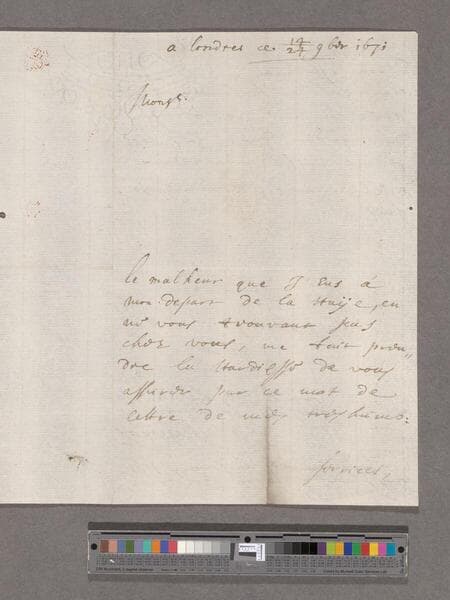 a londres ce 14/24 9ber 1671
Monsr.
le malheur que J'Eus á
mon depart de la Haÿe, en
ne vous trouvant pas
chez vous, me fait pren„
dre la Hardiesse de vous
assurer par ce mot de
lettre de mes tres humb:
services,